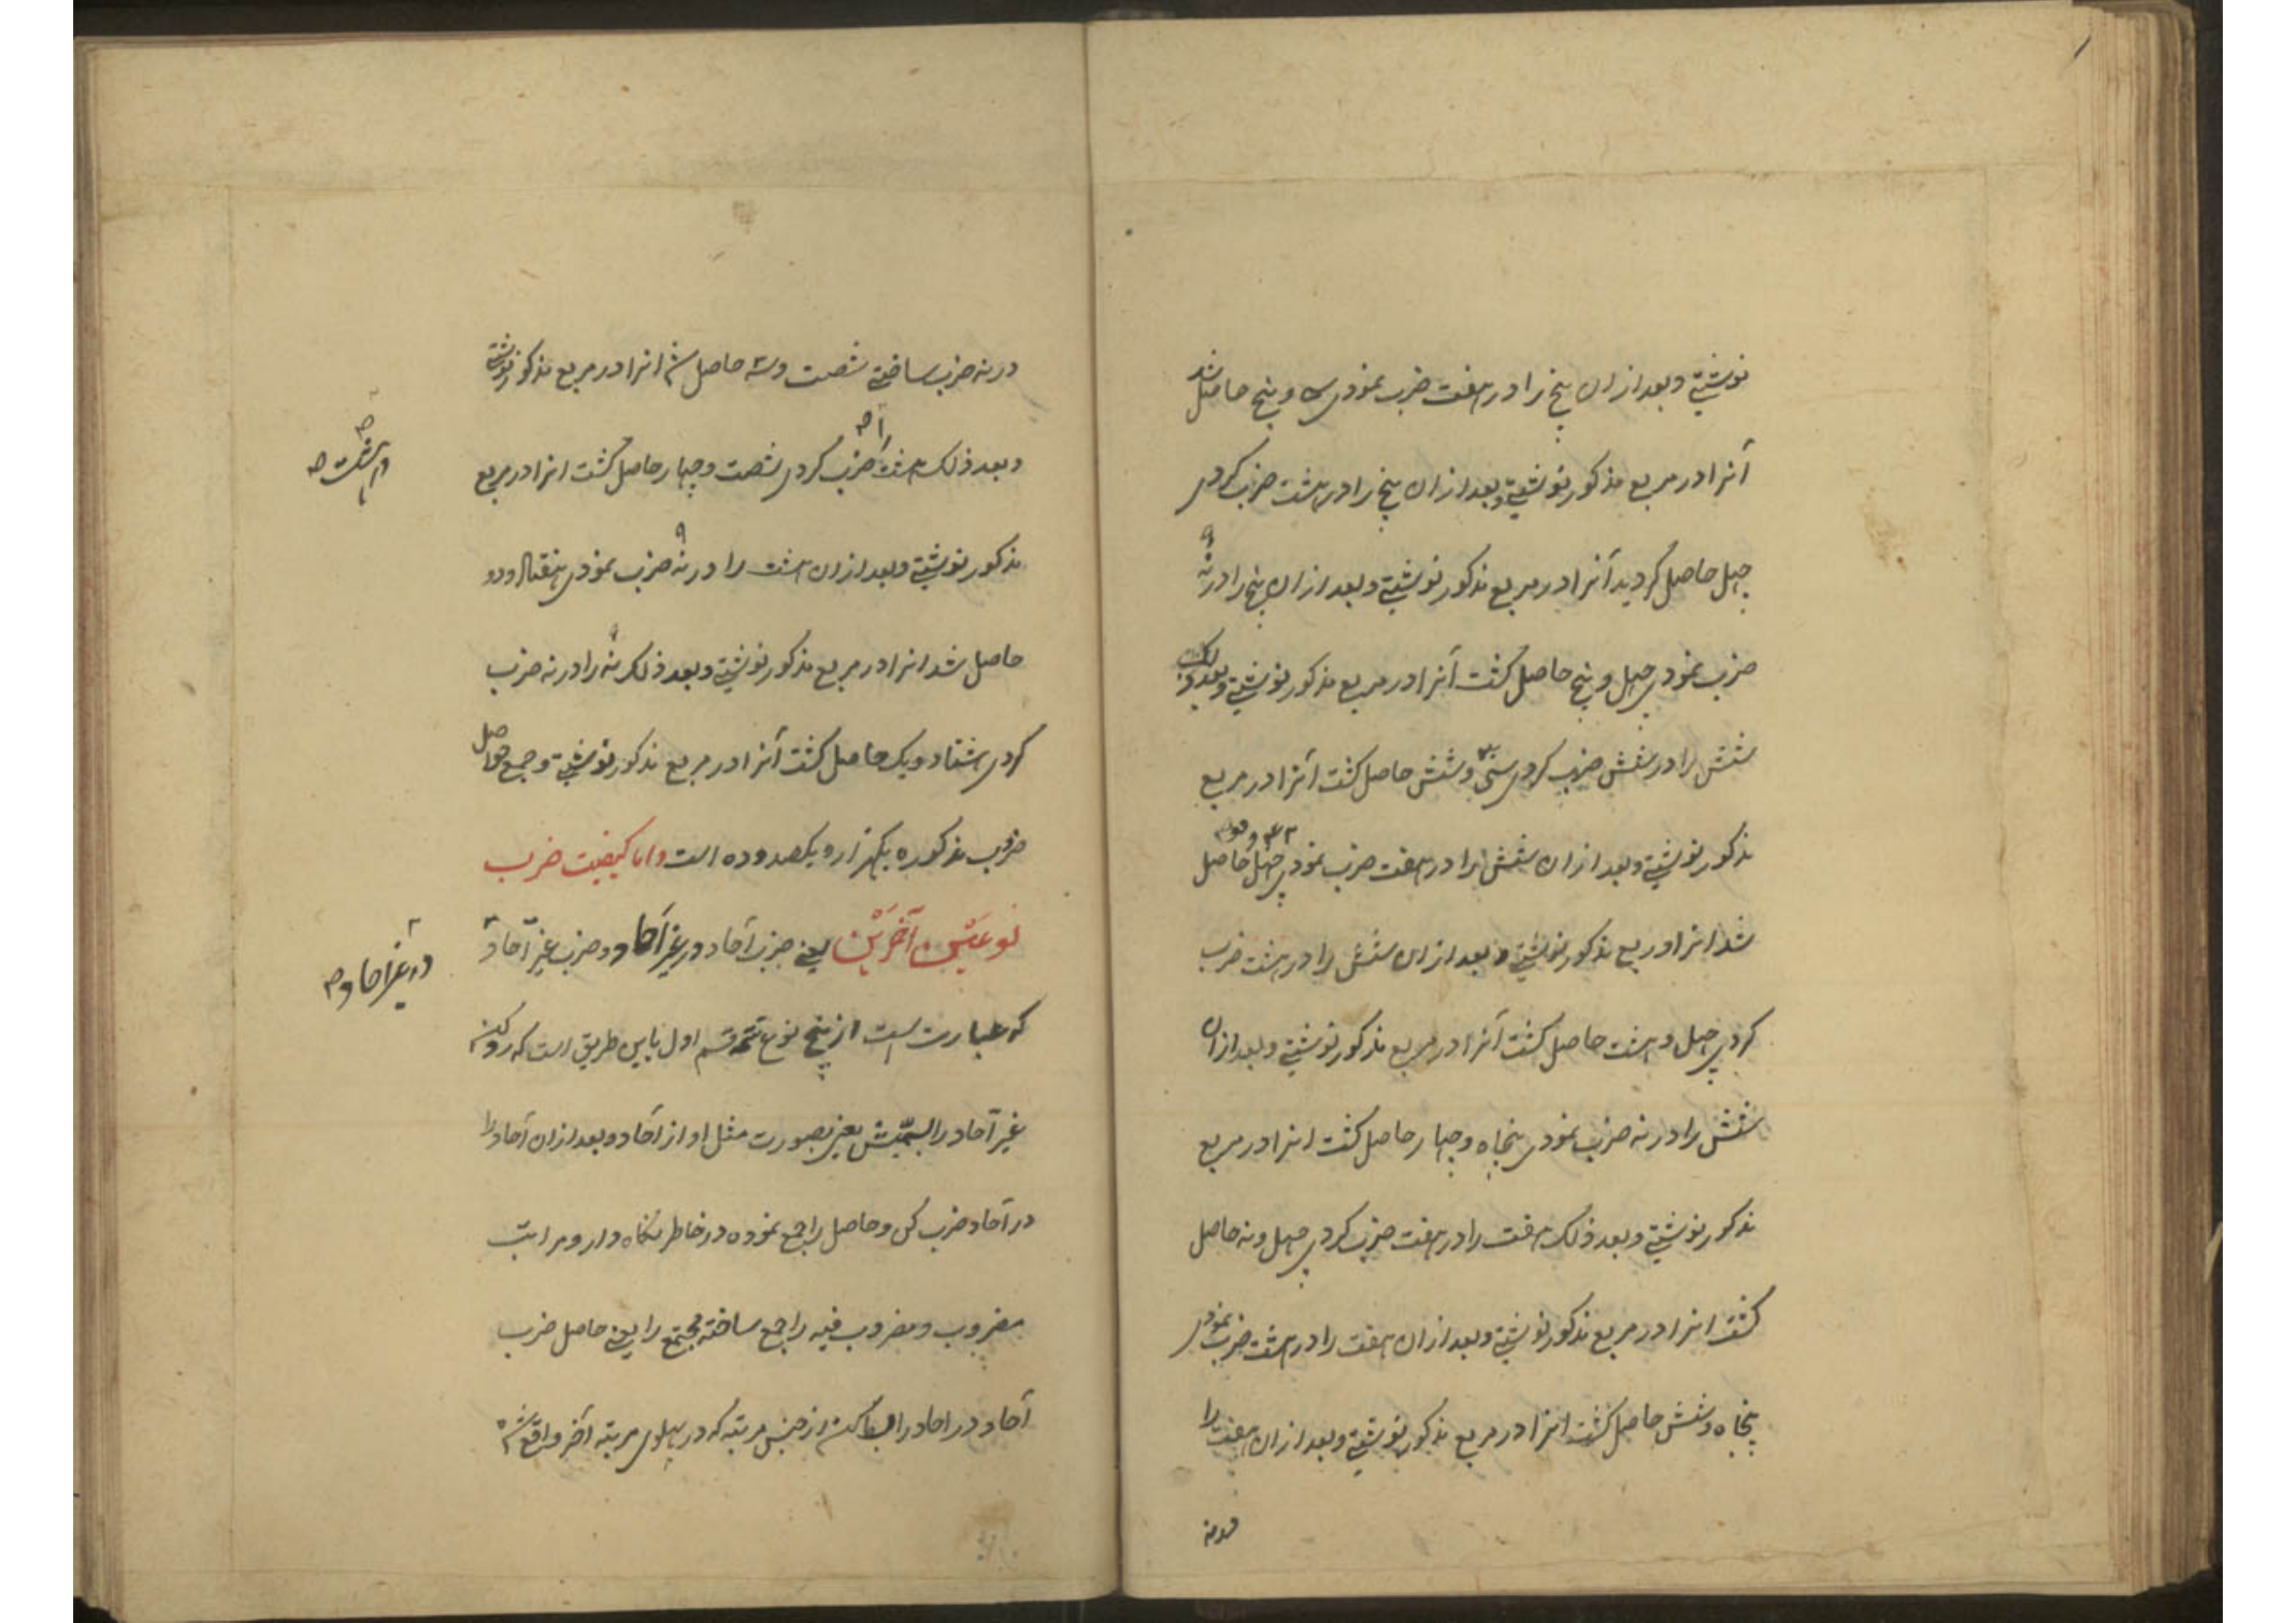 نوشتی و بعد ازان پنج را در هفت ضرب نمودی سی و پنج حاصل شد
آنرا در مربع مذکور نوشتی و بعد ازان پنج را در هشت ضرب کردی
چهل حاصل گردید آنرا در مربع مذکور نوشتی و بعد ازان پنج را در نه
ضرب نمودی چهل و پنج حاصل گشت آنرا در مربع مذکور نوشتی و بعد ذلک
شش را در شش ضرب کردی سی و شش حاصل گشت آنرا در مربع
مذکور نوشتی و بعد ازان شش را در هفت ضرب نمودی چهل و دو حاصل
شد انرا در ربع مذکور نوشتی و بعد ازان شش را در هشت ضرب
کردی چهل و هشت حاصل گشت آنرا در مربع مذکور نوشتی و بعد ازان
شش را در نه ضرب نمودی پنجاه و چهار حاصل گشت انرا در مربع
مذکور نوشتی و بعد ذلک هفت را در هفت ضرب کردی چهل و نه حاصل
گشت انرا در مربع مذکور نوشتی و بعد ازان هفت را در هشت ضرب نمودی
پنجاه و شش حاصل گشت انرا در مربع مذکور نوشتی و بعد ازان هفت را
در نه
در نه ضرب ساختی شصت و سه حاصل شد انرا در مربع مذکور نوشتی
و بعد ذلک هشت را ضرب کردی شصت و چهار حاصل گشت انرا در مربع
در هشت صح
مذکور نوشتی و بعد ازان هشت را در نه ضرب نمودی هفتاد و دو
حاصل شد انرا در مربع مذکور نوشتی و بعد ذلک نه را در نه ضرب
کردی هشتاد و یک حاصل گشت آنرا در مربع مذکور نوشتی و جمع حواصل
ضروب مذکوره یکهزار و یکصد و ده است و اما کیفیت ضرب
نوعین آخرین یعنی ضرب آحاد در غیر آحاد و ضرب غیر آحاد
در غیر آحاد صح
که عبارت است از پنج نوع تتمه قسم اول باین طریق است که رد کن
غیر آحاد را بسمیش یعنی بصورت مثل او از آحاد و بعد ازان آحاد را
در آحاد ضرب کن و حاصل را جمع نموده در خاطر نگاه دار و مراتب
مضروب و مضروب فیه را جمع ساخته مجتمع را یعنی حاصل ضرب
آحاد در احاد را بسط کن از جنس مرتبه که در پهلوی مرتبه آخر واقع شده